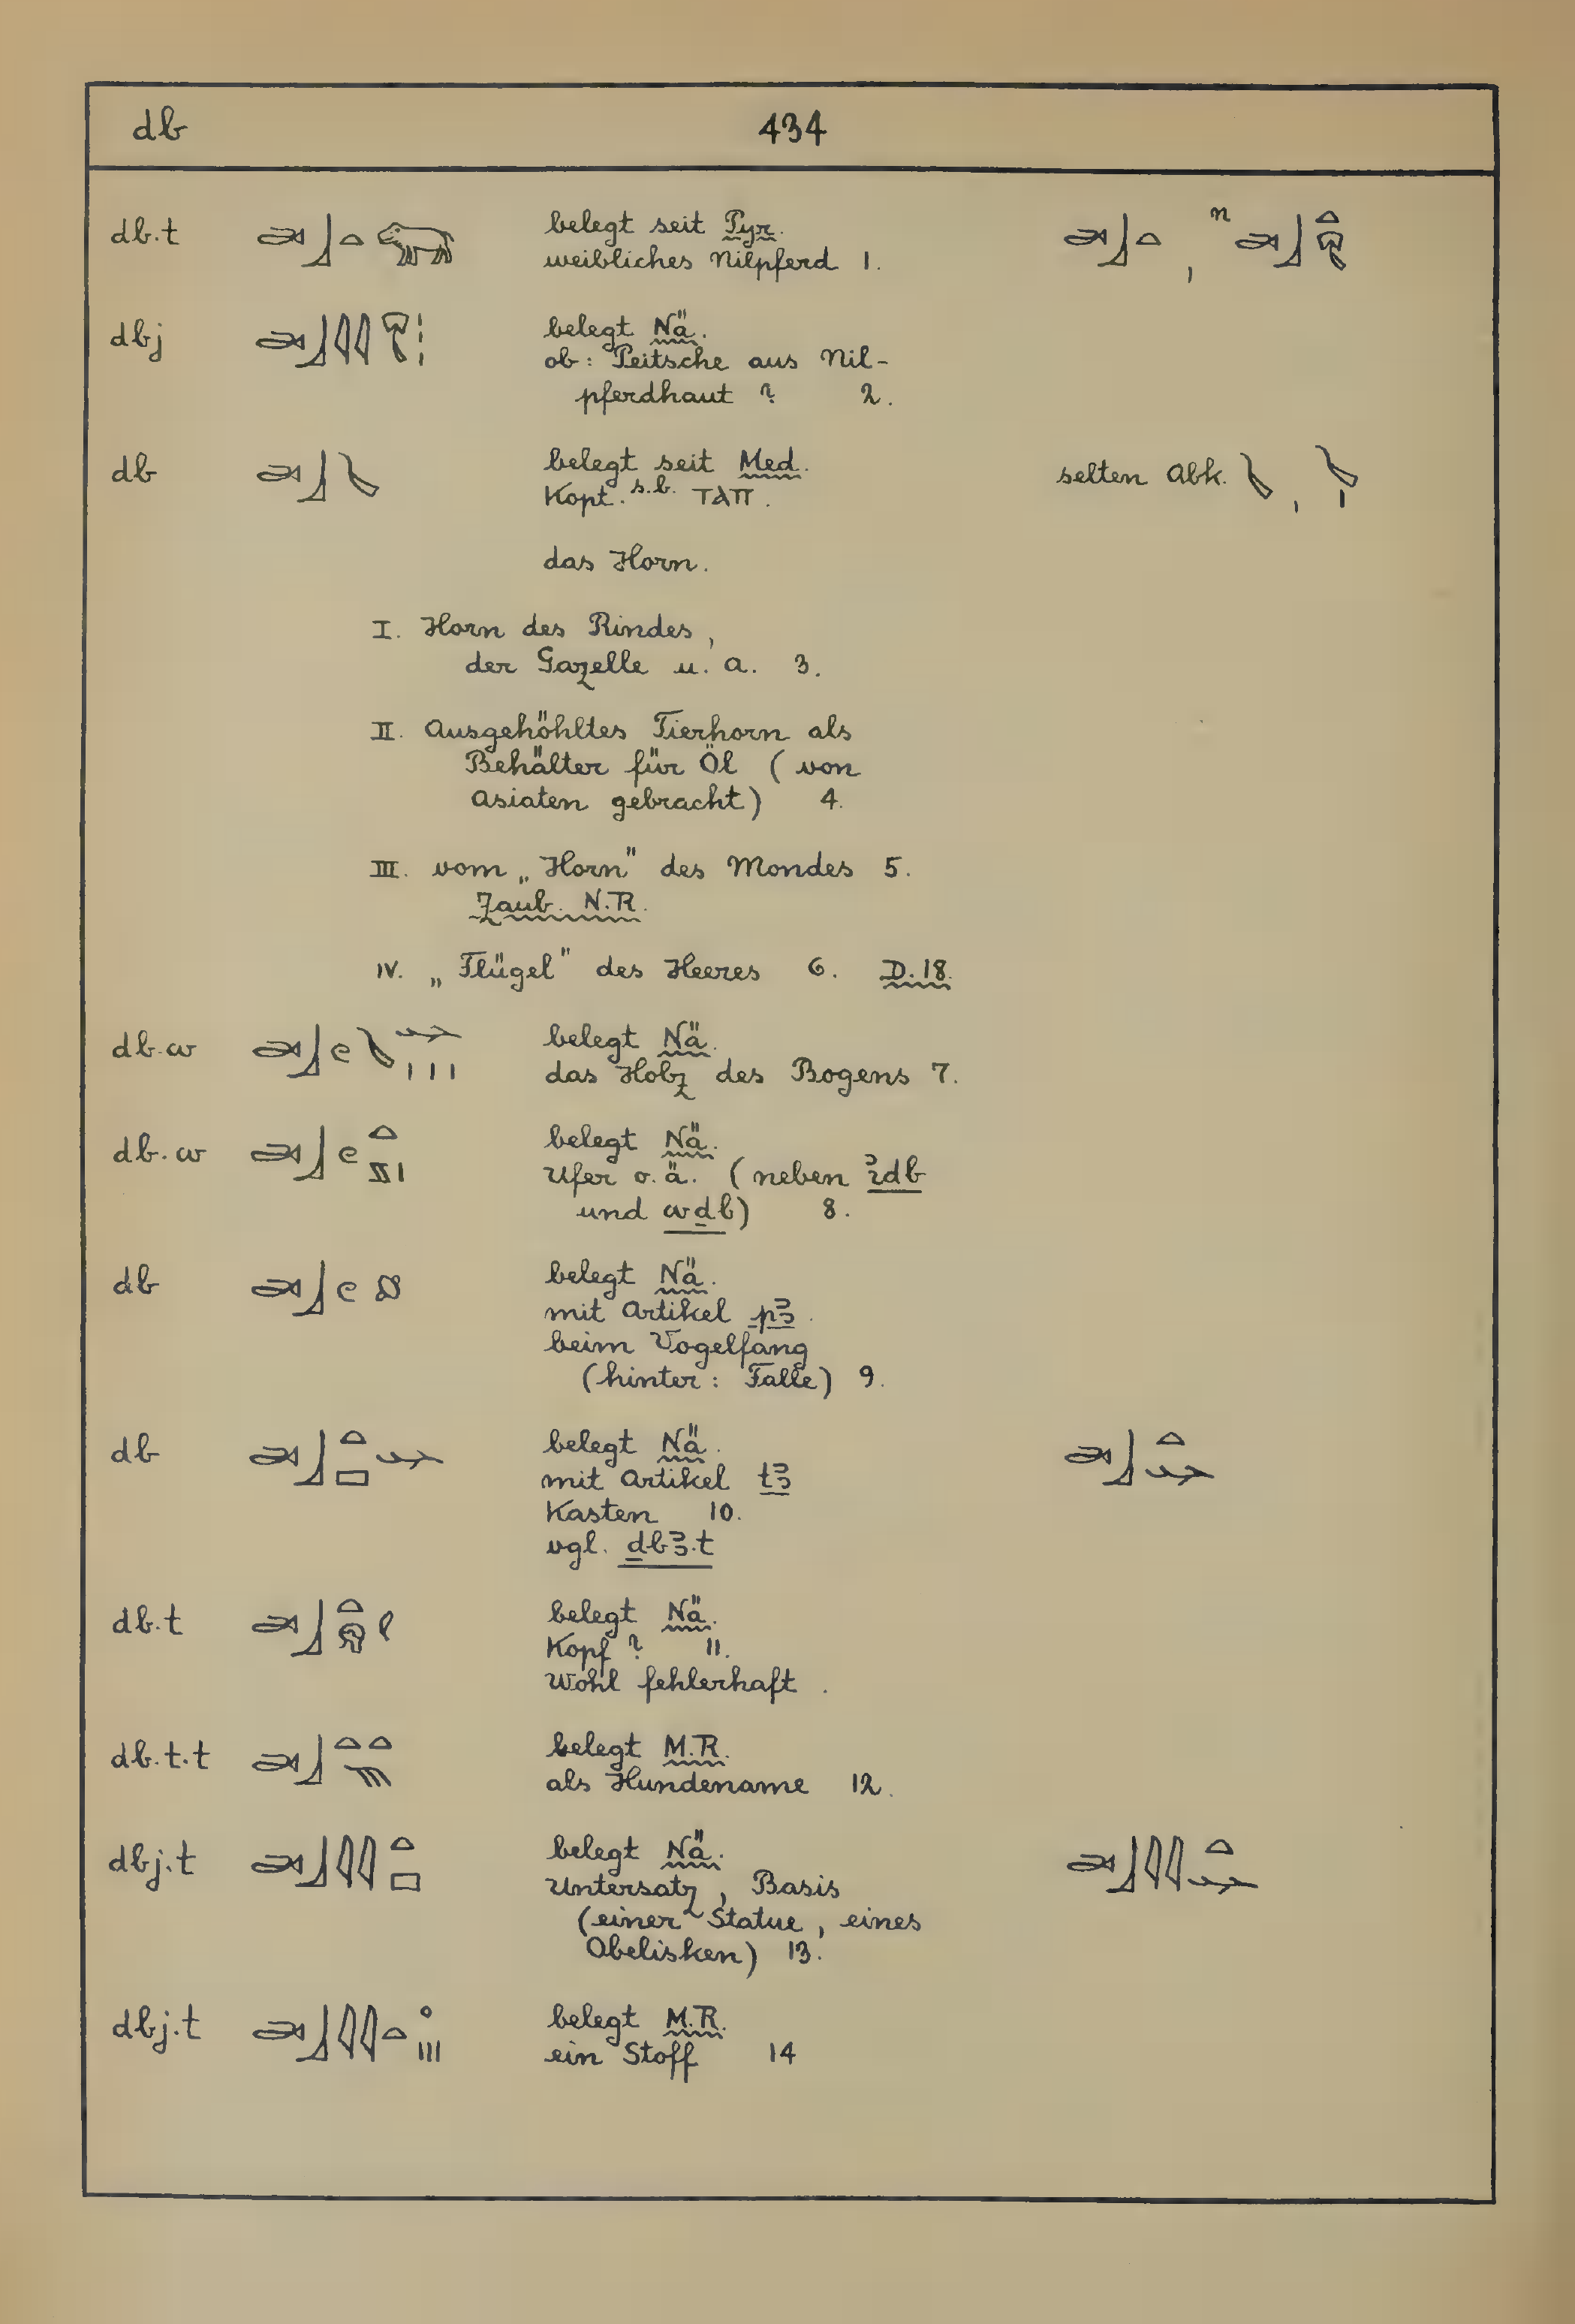 db 434
db.t 𓂧𓃀𓏏𓃯 belegt seit Pyr. 𓂧𓃀𓏏 , n 𓂧𓃀𓏏𓄜
weibliches Nilpferd 1.
dbj belegt Nä.
ob: Peitsche aus Nil-
pferdhaut ? 2.
db belegt seit Med. selten Abk. 𓄏 , 𓄏𓏤
Kopt. s.b. ⲧⲁⲡ.
das Horn.
I. Horn des Rindes,
der Gazelle u. a. 3.
II. Ausgehöhltes Tierhorn als
Behälter für Öl (von
Asiaten gebracht) 4.
III. vom „Horn" des Mondes 5.
Zaub. N.R.
IV. „Flügel" des Heeres 6. D.18.
db.w belegt Nä.
das Holz des Bogens 7.
db.w belegt Nä.
Ufer o.ä. (neben ꜣdb
und wḏb) 8.
db belegt Nä.
mit Artikel pꜣ.
beim Vogelfang
(hinter: Falle) 9.
db belegt Nä.
mit Artikel tꜣ
Kasten 10.
vgl. ḏbꜣ.t
db.t belegt Nä.
Kopf ? 11.
Wohl fehlerhaft.
db.t.t belegt M.R.
als Hundename 12.
dbj.t belegt Nä.
Untersatz, Basis
(einer Statue, eines
Obelisken) 13.
dbj.t belegt M.R.
ein Stoff 14